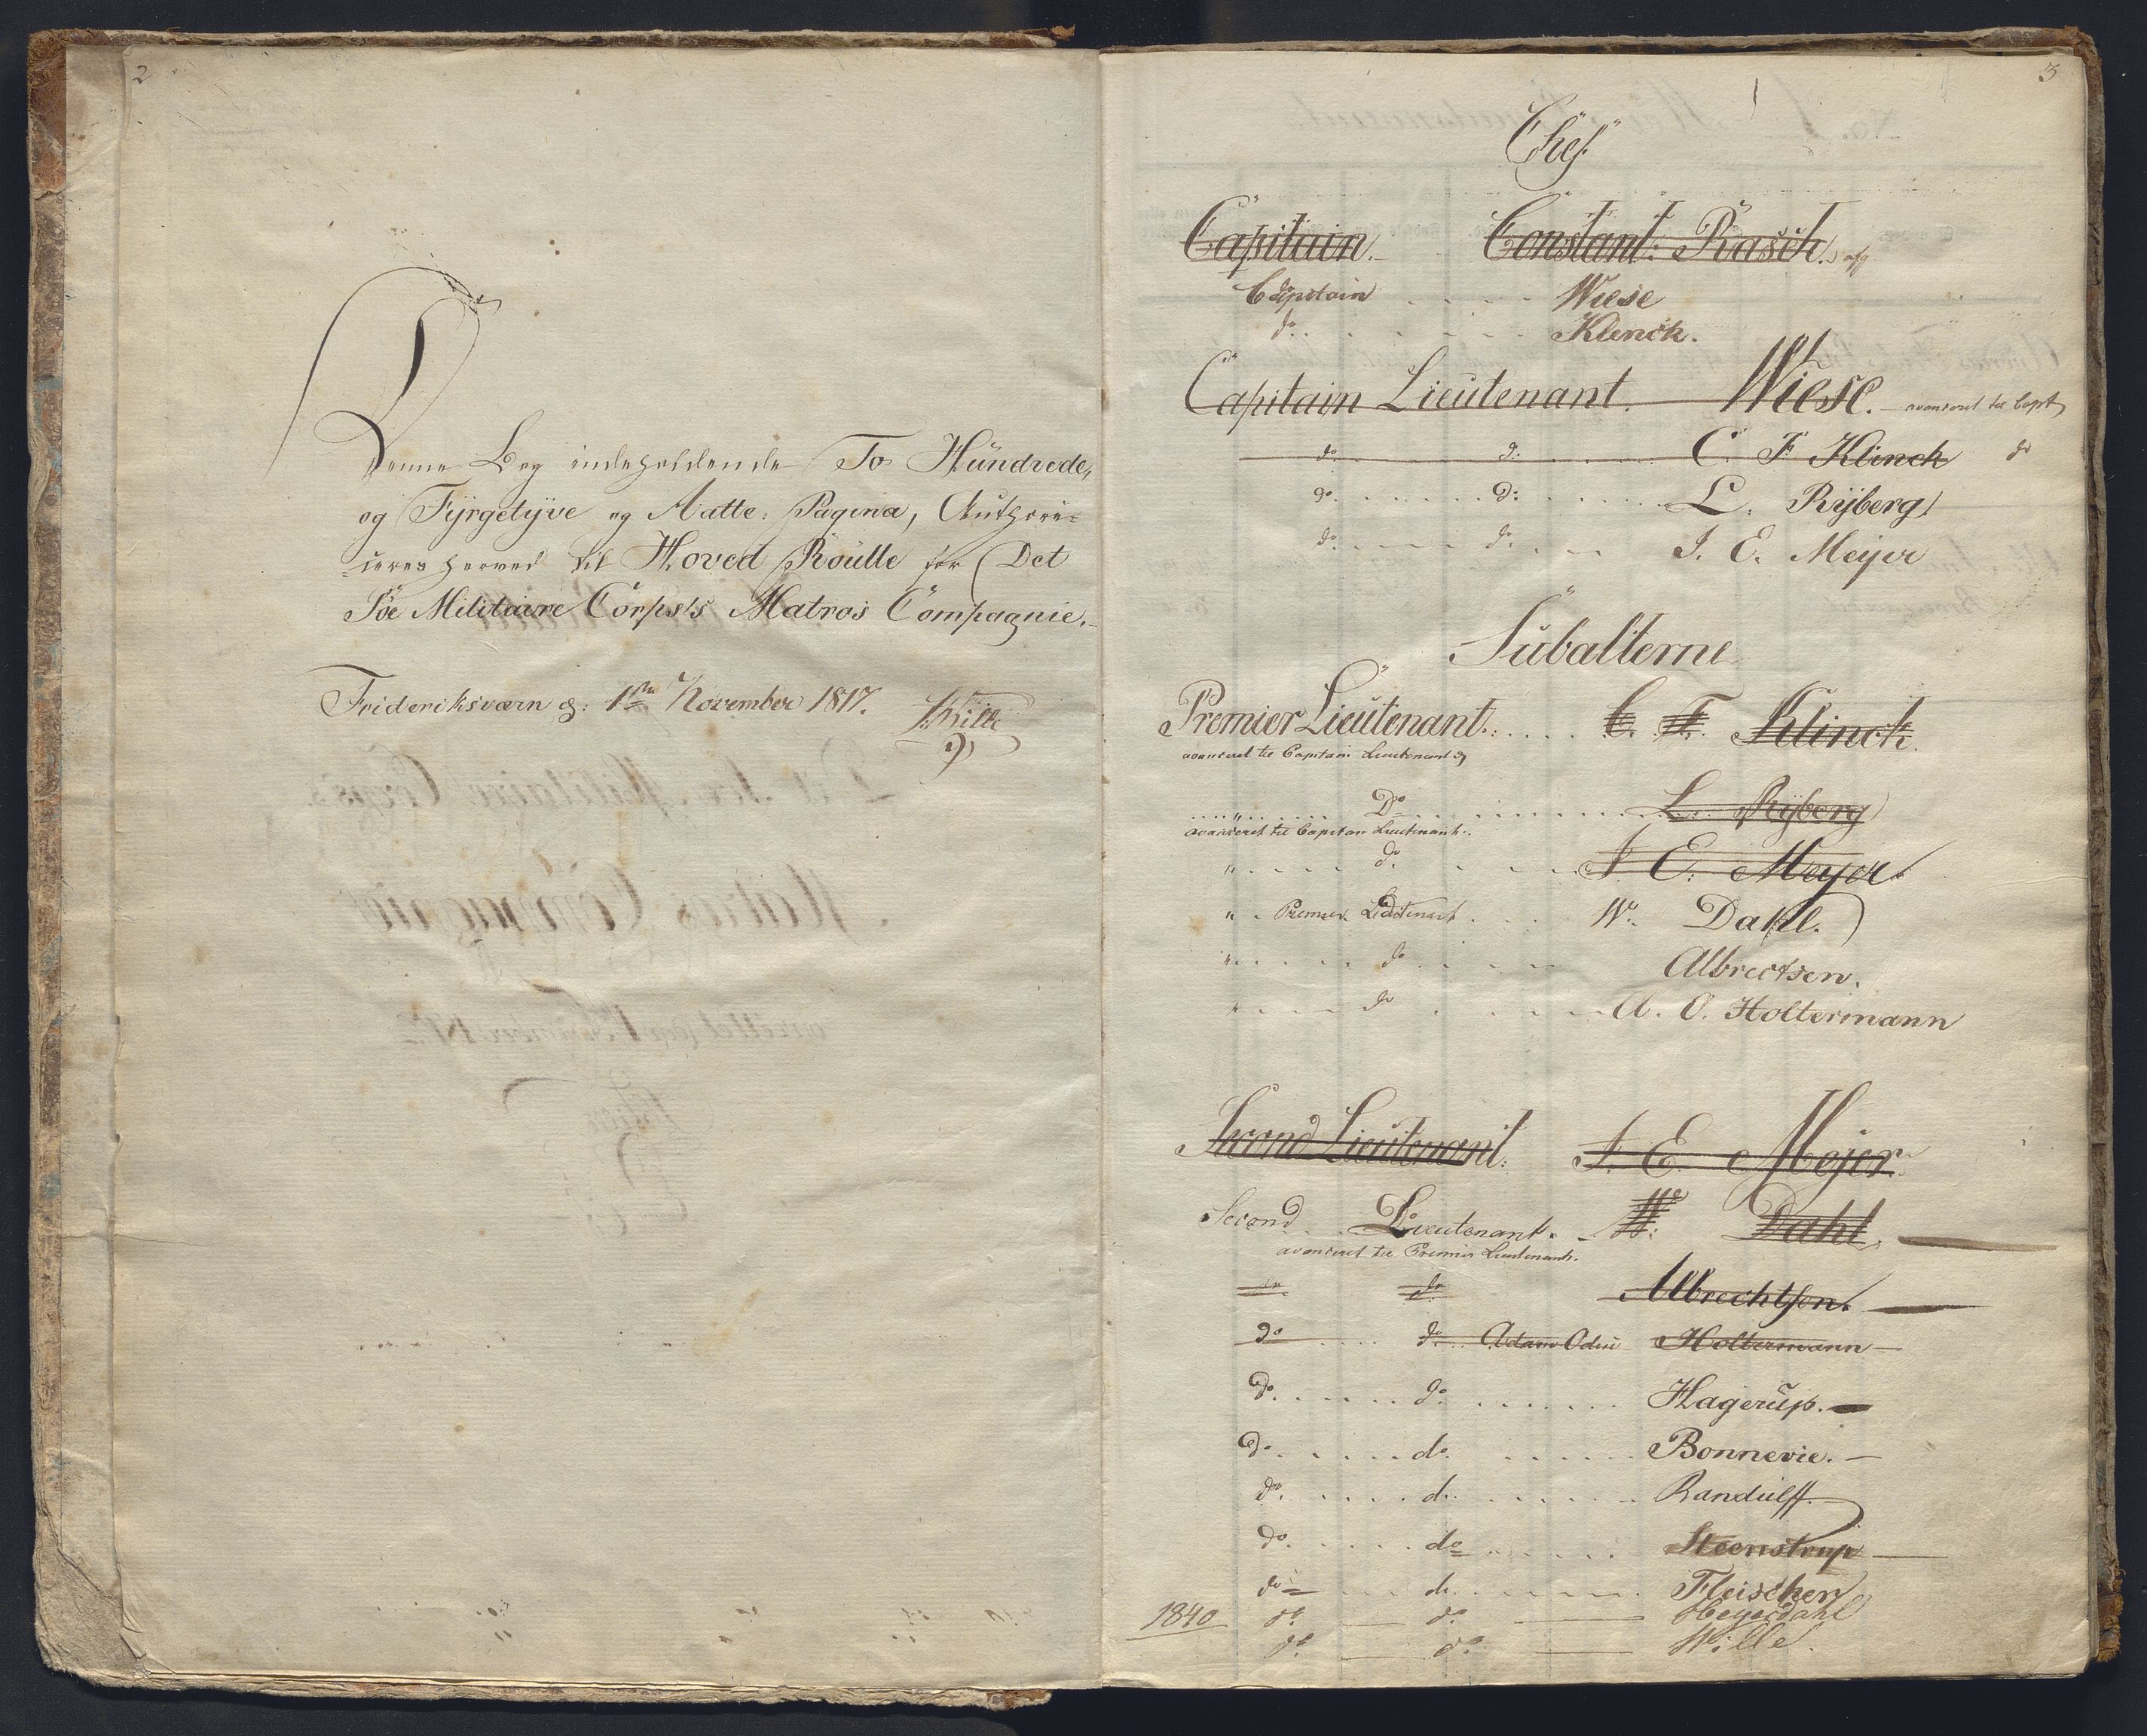 2
Denne Bog indeholdende To Hundrede,
og Fÿrgetÿve og Aatte: Pagina, Authori-
-seres herved til Hoved Roulle for Det
Søe Militaire Corps's Matros Compagnie.
Frideriksværn d: 1te November 1817.
3
Chef
Capitain. Constant: Rasch.
Capitain Wiese
do Klinck.
Capitain Lieutenant. Wiese. avanceret til Capt
do do C. F Klinck do
do do L. Rÿberg
do do J. E. Meÿer
Subalterne
Premier Lieutenant C. F. Klinck.
avanceret til Capitain Lieutenant
" Do L. Rÿberg
avanceret til Capitain Lieutenant.
" do J E. Meyer
" Premier Lieutenant W. Dahl.
" do Albrectsen.
" do A. O. Holtermann
Second Lieutenant. J. E. Mejer
Second Lieutenant. W. Dahl.
avanceret til Premier Lieutenant.
do do Albrechtsen.
do do Adam Odin Holtermann
do do Hagerup.
do do Bonnevie.
do do Randulff.
do do Steenstrup
do do Fleischer
1840 do do Heyerdahl
do do Wille.